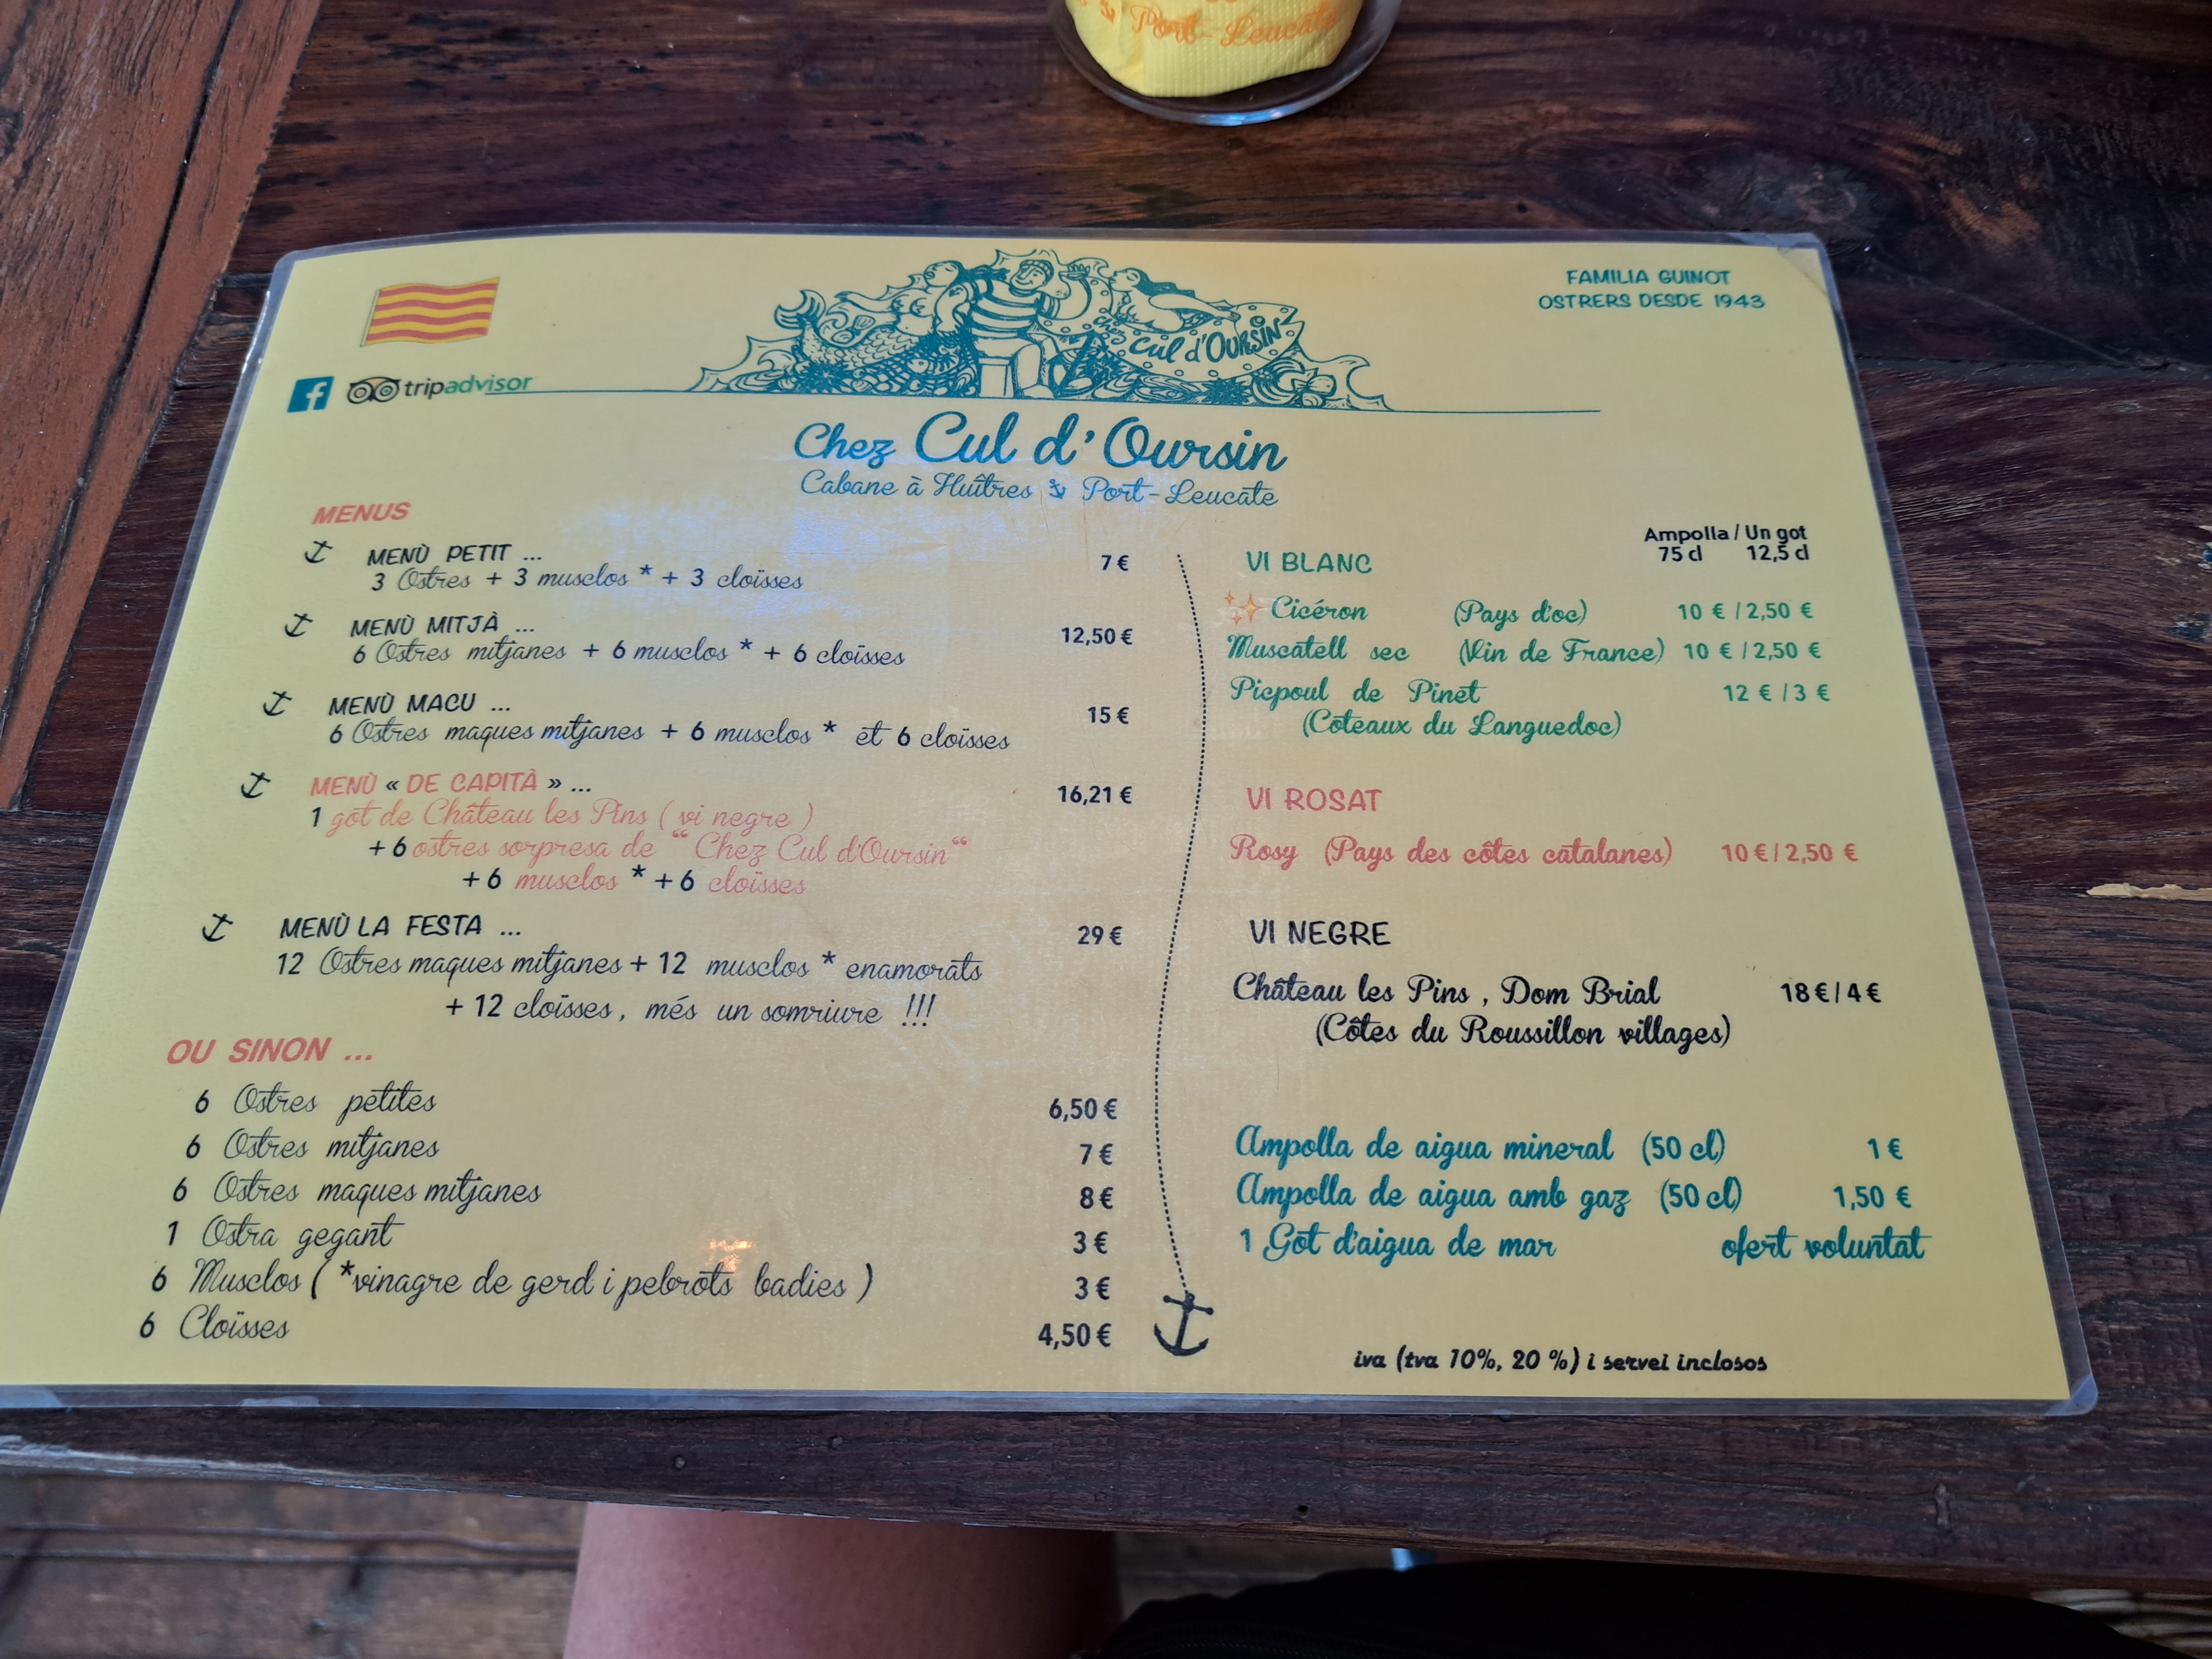 Port-Leucate
FAMILIA GUINOT
OSTRERS DESDE 1943
chez
Cul d'OURSIN
f tripadvisor
Chez Cul d'Oursin
Cabane à Huîtres Port-Leucate
MENUS
MENÙ PETIT ... 7 €
3 Ostres + 3 musclos * + 3 cloïsses
MENÙ MITJÀ ... 12,50 €
6 Ostres mitjanes + 6 musclos * + 6 cloïsses
MENÙ MACU ... 15 €
6 Ostres maques mitjanes + 6 musclos * et 6 cloïsses
MENÙ « DE CAPITÀ » ... 16,21 €
1 got de Château les Pins ( vi negre )
+ 6 ostres sorpresa de “ Chez Cul d'Oursin“
+ 6 musclos * + 6 cloïsses
MENÙ LA FESTA ... 29 €
12 Ostres maques mitjanes + 12 musclos * enamorats
+ 12 cloïsses, més un somriure !!!
OU SINON ...
6 Ostres petites 6,50 €
6 Ostres mitjanes 7 €
6 Ostres maques mitjanes 8 €
1 Ostra gegant 3 €
6 Musclos ( *vinagre de gerd i pebrots badies ) 3 €
6 Cloïsses 4,50 €
Ampolla / Un got
75 cl 12,5 cl
VI BLANC
Cicéron (Pays d'oc) 10 € / 2,50 €
Muscatell sec (Vin de France) 10 € / 2,50 €
Picpoul de Pinet 12 € / 3 €
(Coteaux du Languedoc)
VI ROSAT
Rosy (Pays des côtes catalanes) 10 € / 2,50 €
VI NEGRE
Château les Pins , Dom Brial 18 € / 4 €
(Côtes du Roussillon villages)
Ampolla de aigua mineral (50 cl) 1 €
Ampolla de aigua amb gaz (50 cl) 1,50 €
1 Got d'aigua de mar ofert voluntat
iva (tva 10%, 20 %) i servei inclosos